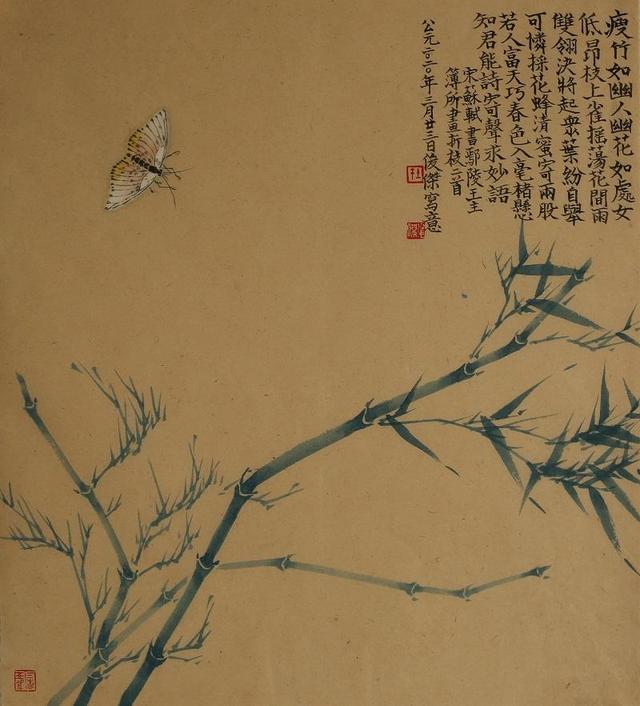 瘦竹如幽人幽花如處女
低昂枝上雀摇蕩花間雨
雙翎决將起衆葉紛自舉
可憐採花蜂清蜜寄兩股
若人富天巧春色入毫楮懸
知君能詩寄聲求妙語
宋蘇軾書鄢陵王主
簿所畫折枝二首
公元二〇二〇年三月廿三日俊傑寫意